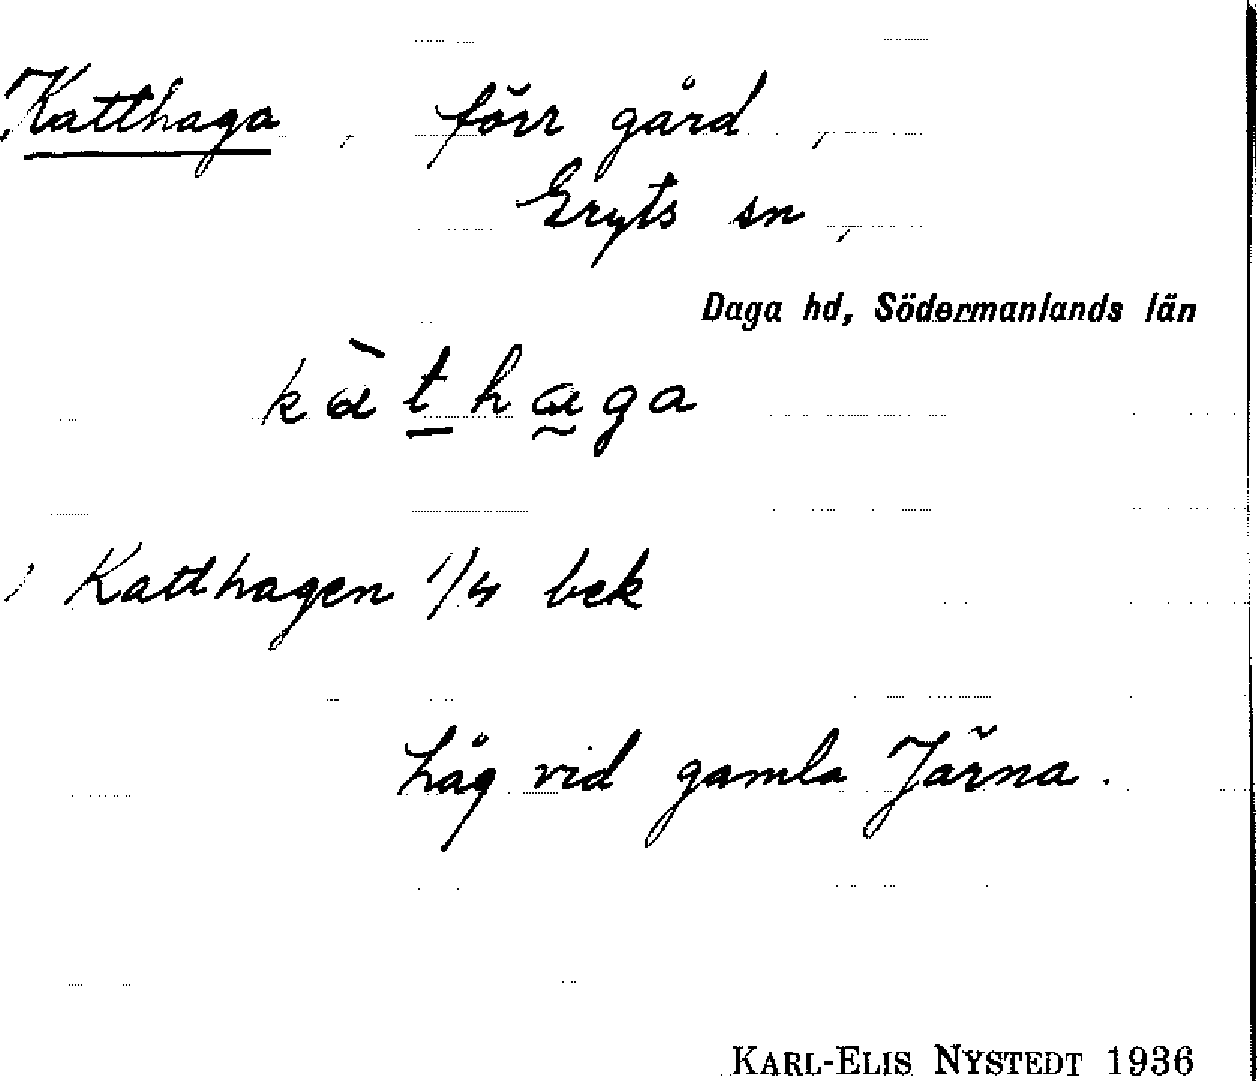 Katthaga, förr gård,
Gryts sn,
Daga hd, Södermanlands län
kàt̲hα̰ga
Katthagen 1/4 bek
Låg vid gamla Järna.
KARL-ELIS NYSTEDT 1936